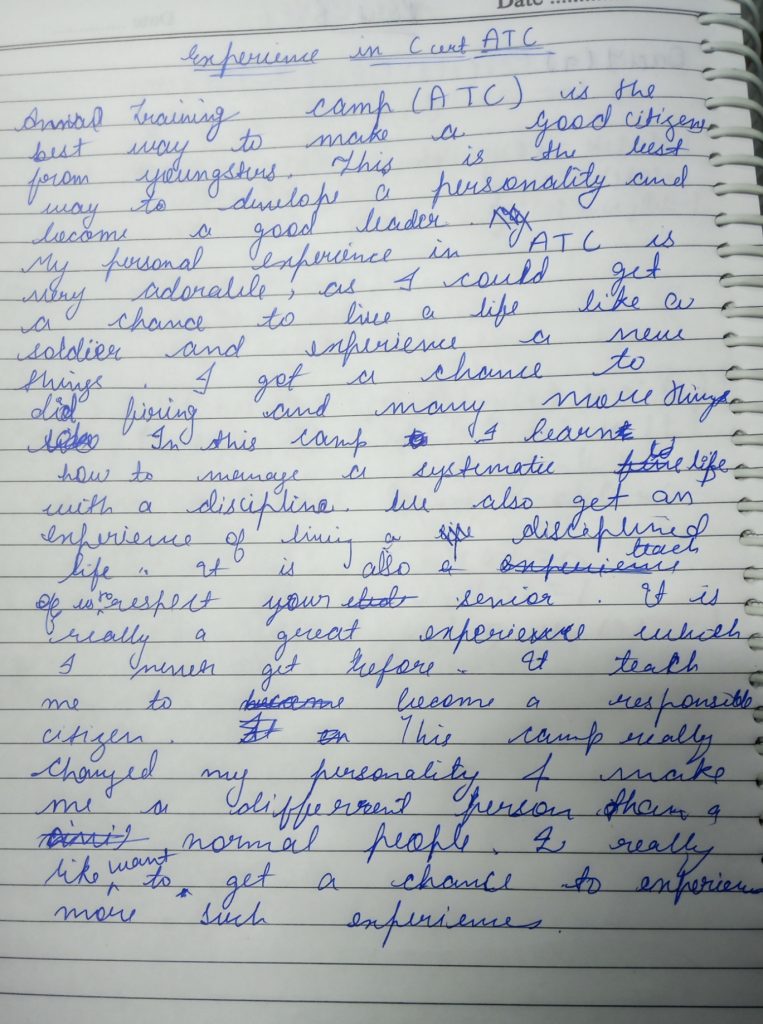 Date ............
Experience in C cert ATC
Annual Training camp (ATC) is the
best way to make a good citizens
from youngsters. This is the best
way to develope a personality and
become a good leader.
My personal experience in ATC is
very adorable, as I could get
a chance to live a life like a
soldier and experience a new
things. I got a chance to
did firing and many more things
In this camp I learnt
how to manage a systematic life
with a discipline. We also get an
experience of living a disciplined
life. It is also a teach
us to respect your senior. It is
really a great experience which
I never get before. It teach
me to become a responsible
citizen. This camp really
changed my personality & make
me a differrent person than a
normal people. I really
like want to get a chance to experience
more such experiences.